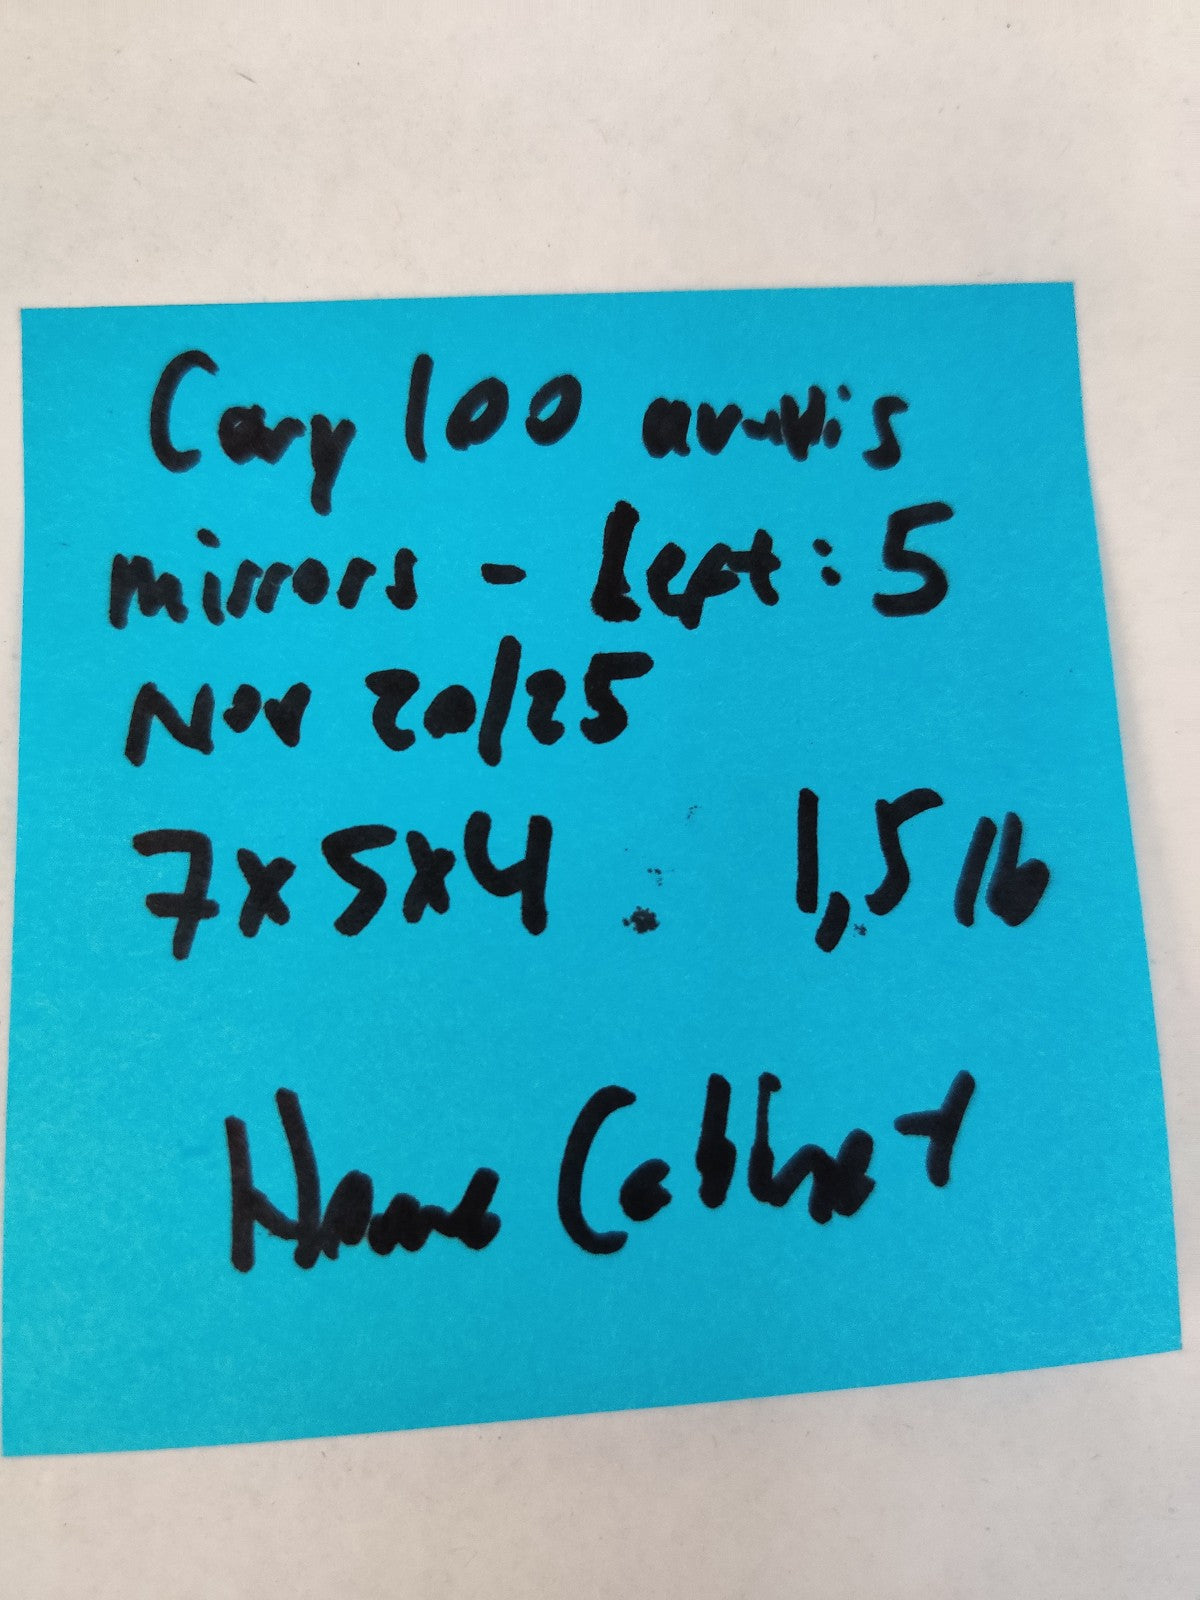 Cary 100 
mirrors - kept : 5
Nov 20/25
7x5x4 1,5 lb
Home Cabinet